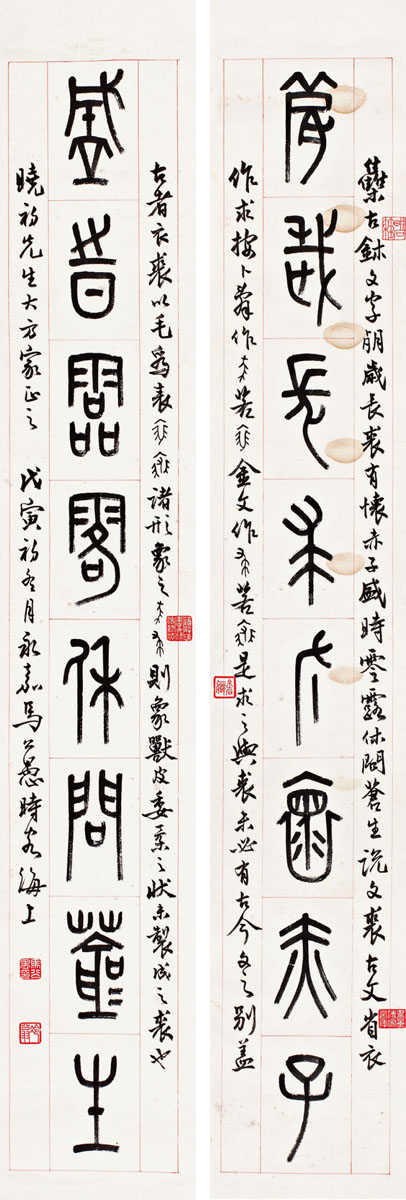 集古鉥文字朋歲長裘有懷赤子盛時零露休問蒼生說文裘古文省衣
朋歲長求有懷赤子
作求按卜辭作若金文作若是求之與裘未必有古今文之別蓋
古者衣裘以毛為表諸形象之則象獸皮委之狀未製成之裘也
盛時零露休問蒼生
曉初先生大方家正之 戊寅初冬月永嘉馬公愚時客海上